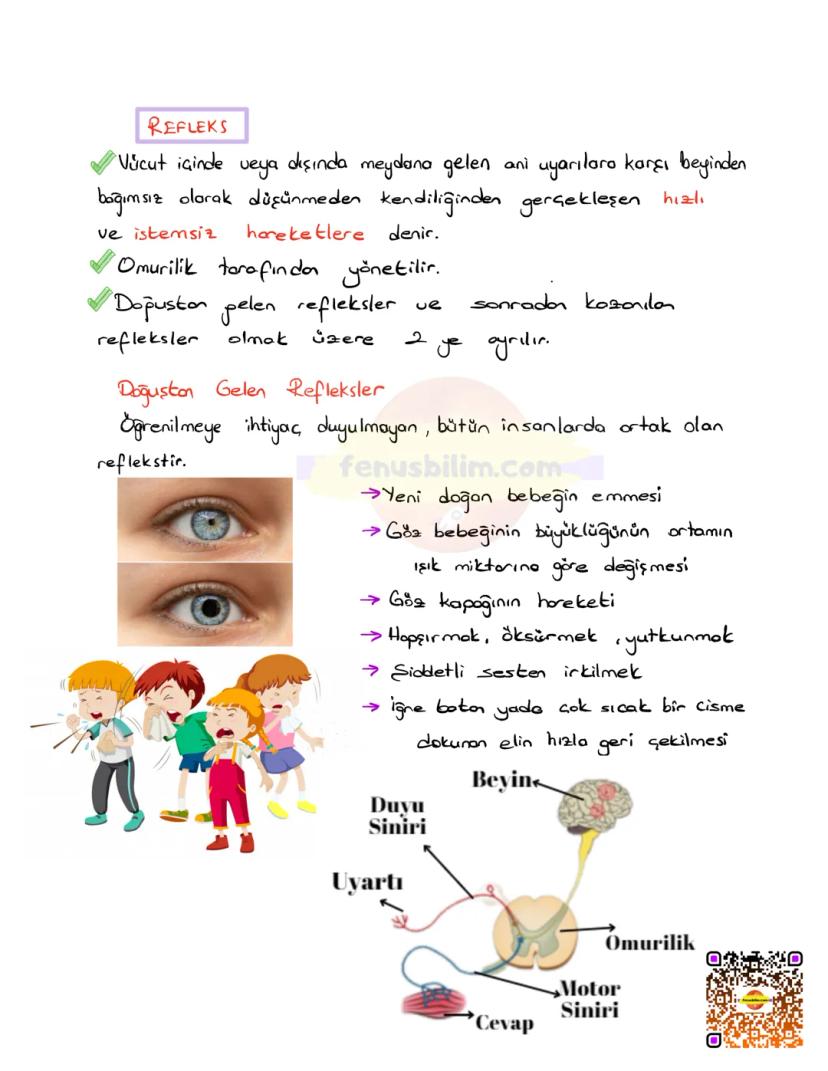 REFLEKS
Vücut içinde veya dışında meydana gelen ani uyarılara karşı beyinden
bağımsız olarak düşünmeden kendiliğinden gerçekleşen hızlı
ve istemsiz hareketlere denir.
Omurilik tarafından yönetilir.
Doğuştan gelen refleksler ve sonradan kazanılan
refleksler olmak üzere 2 ye ayrılır.
Doğuştan Gelen Refleksler
Öğrenilmeye ihtiyaç duyulmayan, bütün insanlarda ortak olan
reflekstir.
fenusbilim.com
→Yeni doğan bebeğin emmesi
→Göz bebeğinin büyüklüğünün ortamın
ışık miktarına göre değişmesi
→ Göz kapağının hareketi
→Hapşırmak, öksürmek, yutkunmak
→ Şiddetli sesten irkilmek
→ iğne batan yada çok sıcak bir cisme
dokunan elin hızla geri çekilmesi
Beyin
Duyu
Siniri
Uyartı
Omurilik
Motor
Siniri
Cevap
fenusbilim.com